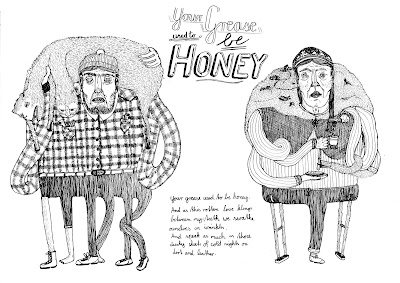 Your Grease
used to be
HONEY
Your grease used to be honey.
And as this rotten love clings
between my teeth we swathe
ourselves in wrinkles.
And speak as much in these
dusty shells of cold nights on
dirt and leather.